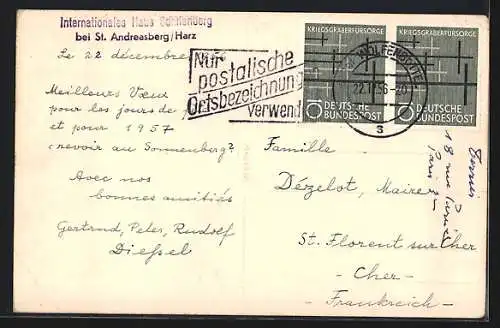 Internationales Haus Sonnenberg
bei St. Andreasberg/Harz
Le 22 décembre
Meilleurs Vœux
pour les jours de
et pour 1957
(revoir au Sonnenberg?
Avec nos
bonnes amitiés
Gertrud, Peter, Rudolf
Diessel
Nur
postalische
Ortsbezeichnung
verwend
KRIEGSGRÄBERFÜRSORGE
10
DEUTSCHE
BUNDESPOST
KRIEGSGRÄBERFÜRSORGE
10
DEUTSCHE
BUNDESPOST
WOLFENBÜTTEL
22.12.56-20
a
Famille
Dézelot, Maire
St. Florent sur Cher
- Cher -
- Frankreich -
18 rue
Paris